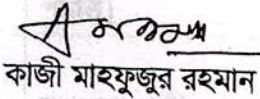 কাজী মাহফুজুর রহমান